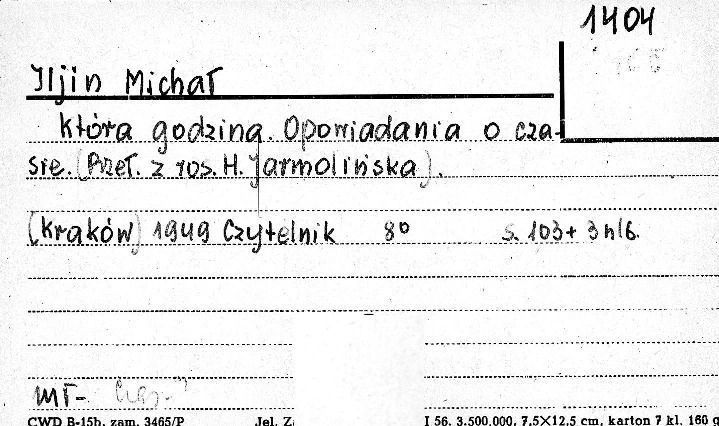 1404
Iljin Michał
Która godzina. Opowiadania o cza-
sie. (Przeł. z ros. H. Jarmolińska).
(Kraków) 1949 Czytelnik 8° s. 103+3 nlb.
MŁ-
CWD B-15b. zam. 3465/P Jel. Z. I 56. 3.500.000. 7,5×12,5 cm, karton 7 kl. 160 g